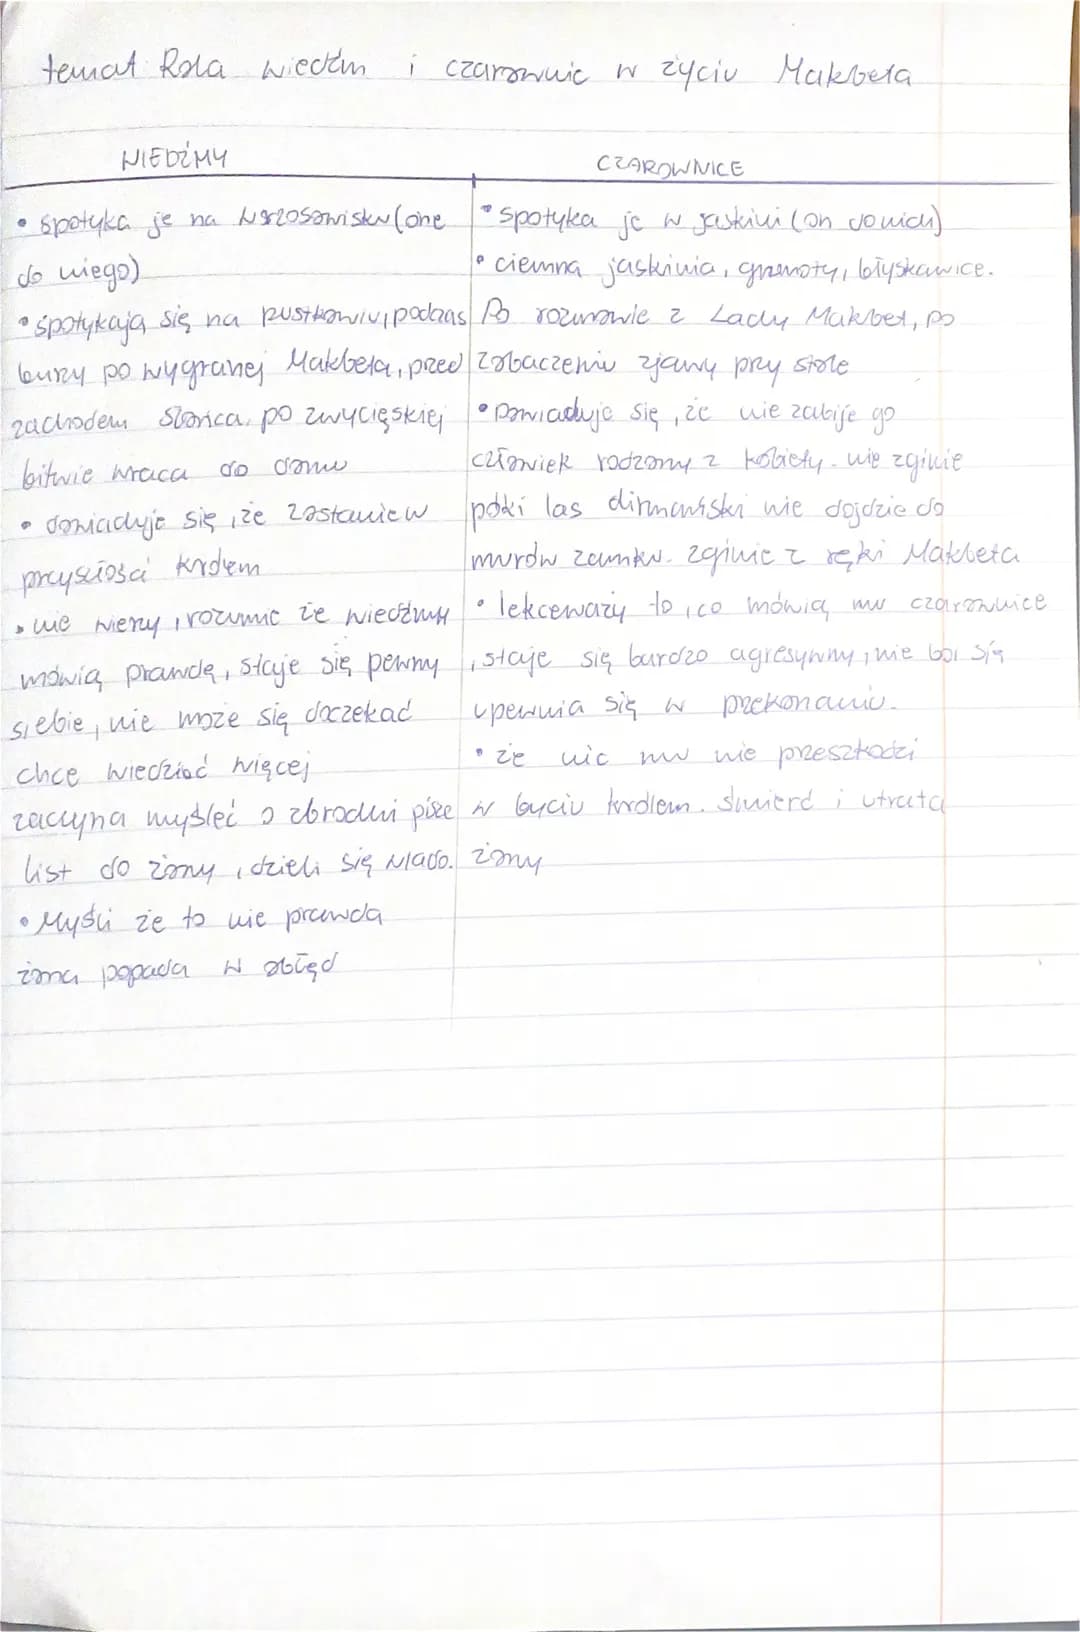 temat Rola wiedźm i czarownic w życiu Makbeta
WIEDŹMY
• spotyka je na wrzosowisku (one
do niego)
• spotykają się na pustkowiu, podczas
burzy po wygranej Makbeta, przed
zachodem słońca, po zwycięskiej
bitwie wraca do domu
• dowiaduje się, że zostanie w
przyszłości królem
• nie wierzy, rozumie że wiedźmy
mówią prawdę, staje się pewny
siebie, nie może się doczekać
chce wiedzieć więcej
zaczyna myśleć o zbrodni pisze
list do żony, dzieli się wiado.
• Myśli że to nie prawda
żona popada w obłęd
CZAROWNICE
• spotyka je w jaskini (on do nich)
• ciemna jaskinia, grzmoty, błyskawice.
Po rozmowie z Lady Makbet, po
zobaczeniu zjawy przy stole
• Dowiaduje się, że nie zabije go
człowiek rodzony z kobiety. nie zginie
póki las dirnamski nie dojdzie do
murów zamku. zginie z ręki Makbeta
• lekceważy to, co mówią mu czarownice
, staje się bardzo agresywny, nie boi się
upewnia się w przekonaniu.
• że nic mu nie przeszkodzi
w byciu królem. śmierć i utrata
żony